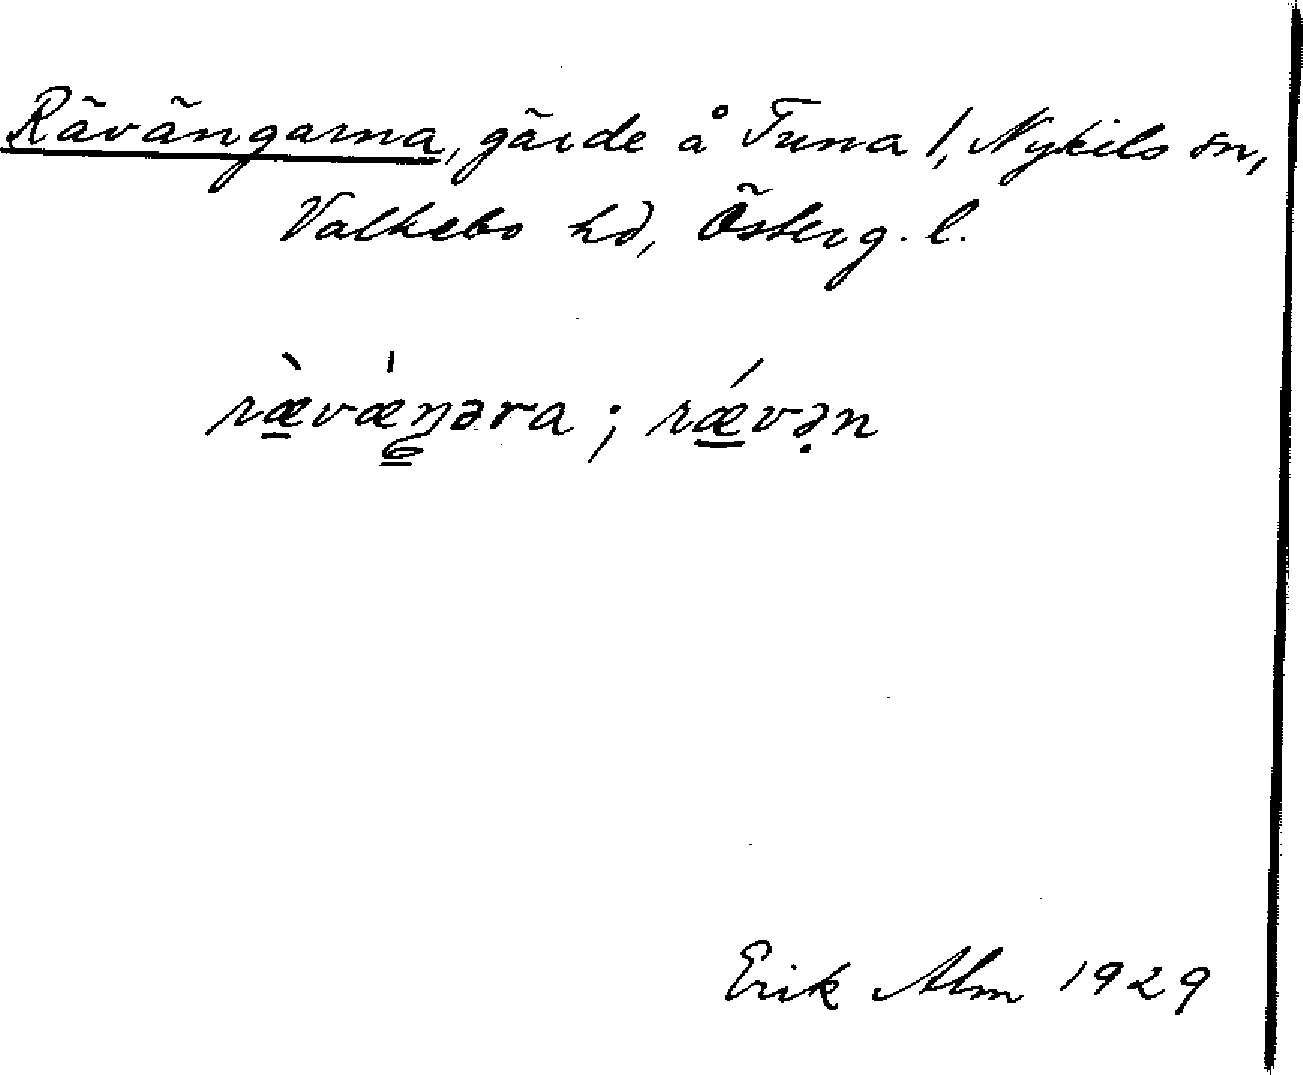 Rävängarna, gärde å Tuna 1, Nykils sn,
Valkebo hd, Österg. l.
ræ̀væ̍ŋəra ; rǽvə̣n
Erik Alm 1929